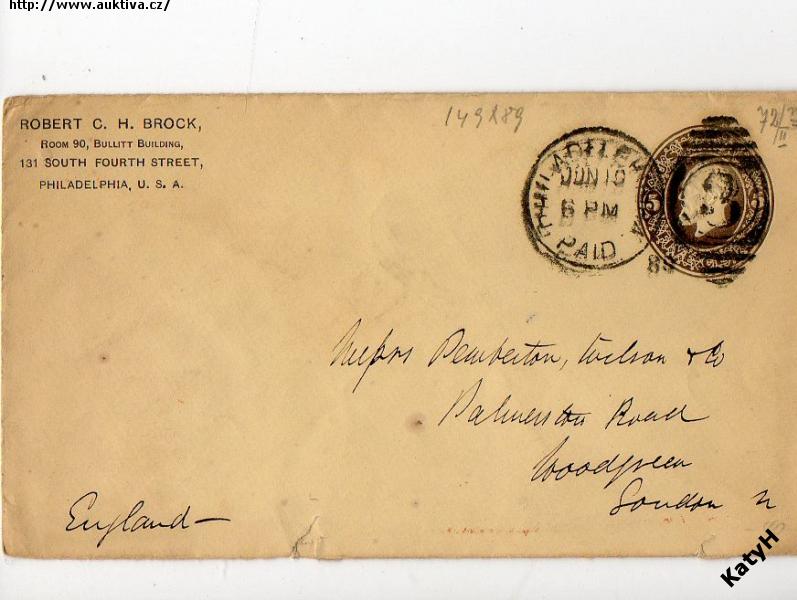 http://www.auktiva.cz/
ROBERT C. H. BROCK,
ROOM 90, BULLITT BUILDING,
131 SOUTH FOURTH STREET,
PHILADELPHIA, U. S. A.
149x89
72/
II
PHILADELPH
JUN 10
6 PM
PAID
5
Messrs Pemberton, Wilson & Co
Palmerston Road
Woodgreen
London N
England—
KatyH